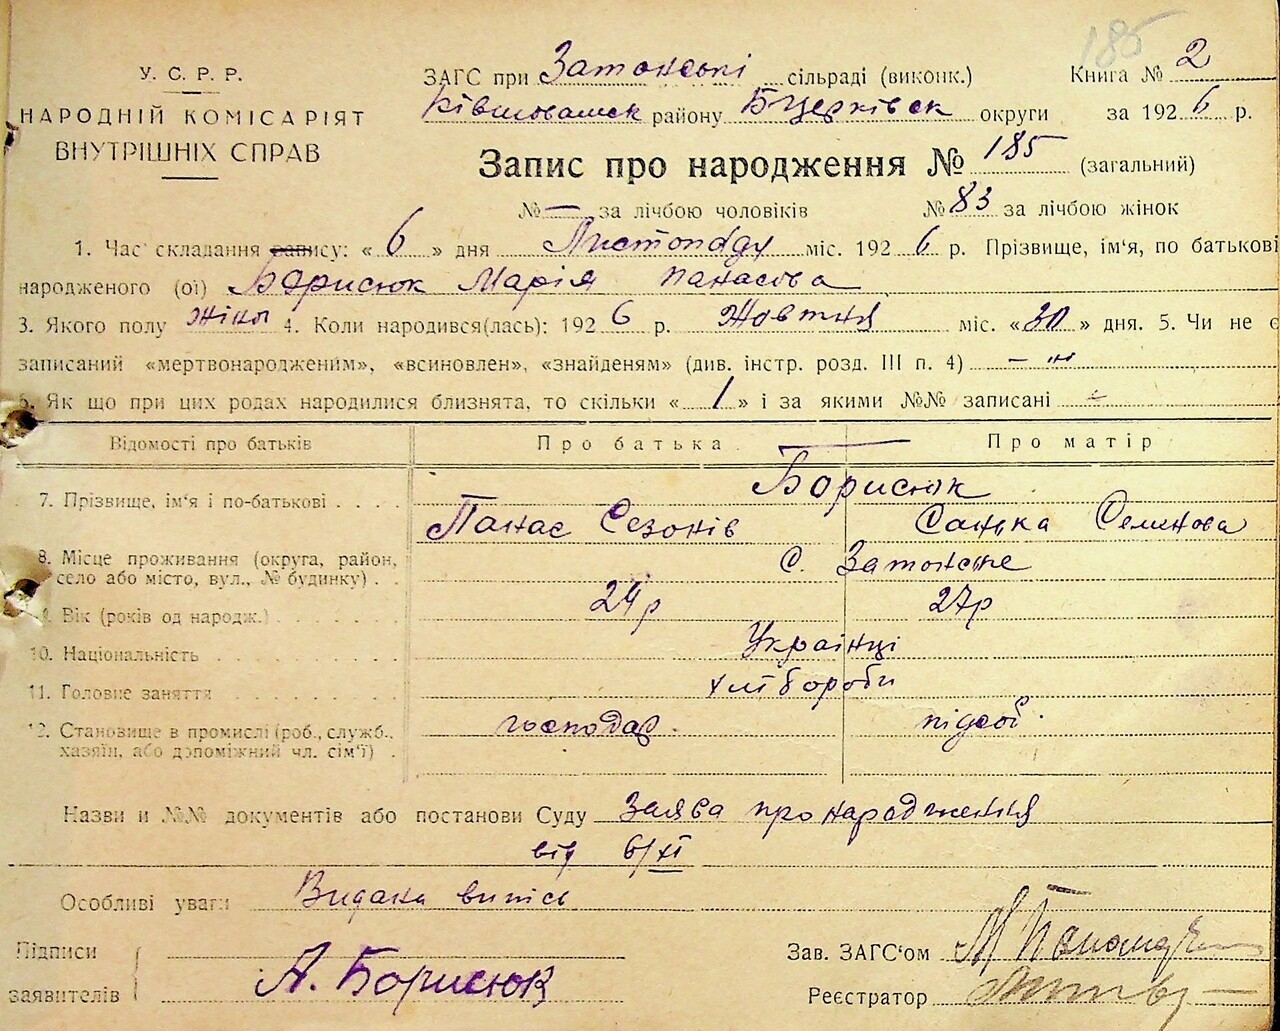 185
У. С. Р. Р.
НАРОДНІЙ КОМІСАРІЯТ
ВНУТРІШНІХ СПРАВ
ЗАГС при Затонські сільраді (виконк.) Книга № 2
Ківшоватськ району Б Церківськ округи за 1926 р.
Запис про народження № 185 (загальний)
№ — за лічбою чоловіків № 83 за лічбою жінок
1. Час складання запису: « 6 » дня Листопаду міс. 1926 р. Прізвище, ім'я, по батькові
народженого (ої) Борисюк Марія Панасова
3. Якого полу жіно 4. Коли народився(лась): 1926 р. Жовтня міс. «30» дня. 5. Чи не є
записаний «мертвонародженим», «всиновлен», «знайденям» (див. інстр. розд. III п. 4) — „ —
6. Як що при цих родах народилися близнята, то скільки « 1 » і за якими №№ записані -
Відомості про батьків Про батька Про матір
7. Прізвище, ім'я і по-батькові Борисюк
Панас Сезонів Санька Семенова
8. Місце проживання (округа, район, село або місто, вул., № будинку) С. Затонське
9. Вік (років од народж.) 24 р 27 р
10. Національність Українці
11. Головне заняття хлібороби
12. Становище в промислі (роб., служб., господар. підсоб.
хазяїн, або допоміжний чл. сім'ї)
Назви и №№ документів або постанови Суду Заява про народження
від 6/XI
Особливі уваги Видана випись
Підписи
заявителів А. Борисюк
Зав. ЗАГС'ом
Реєстратор